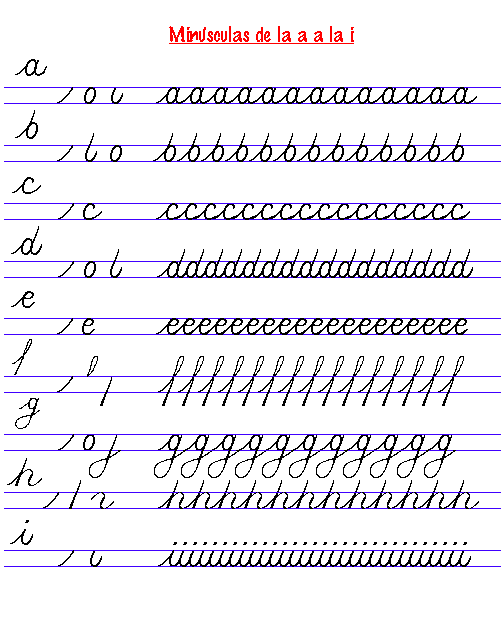 Minúsculas de la a a la i
a
aaaaaaaaaaaaa
b
bbbbbbbbbbbbb
c
c cccccccccccccccc
d
ddddddddddddddddd
e
e eeeeeeeeeeeeeeeeeee
f
fffffffffffffff
g
gggggggggggg
h
hhhhhhhhhhhhh
i
iiiiiiiiiiiiiiiiiiiiiiiiiiii